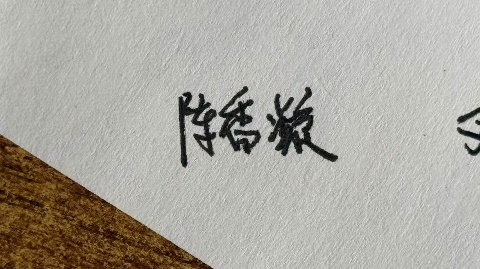 陈香凝